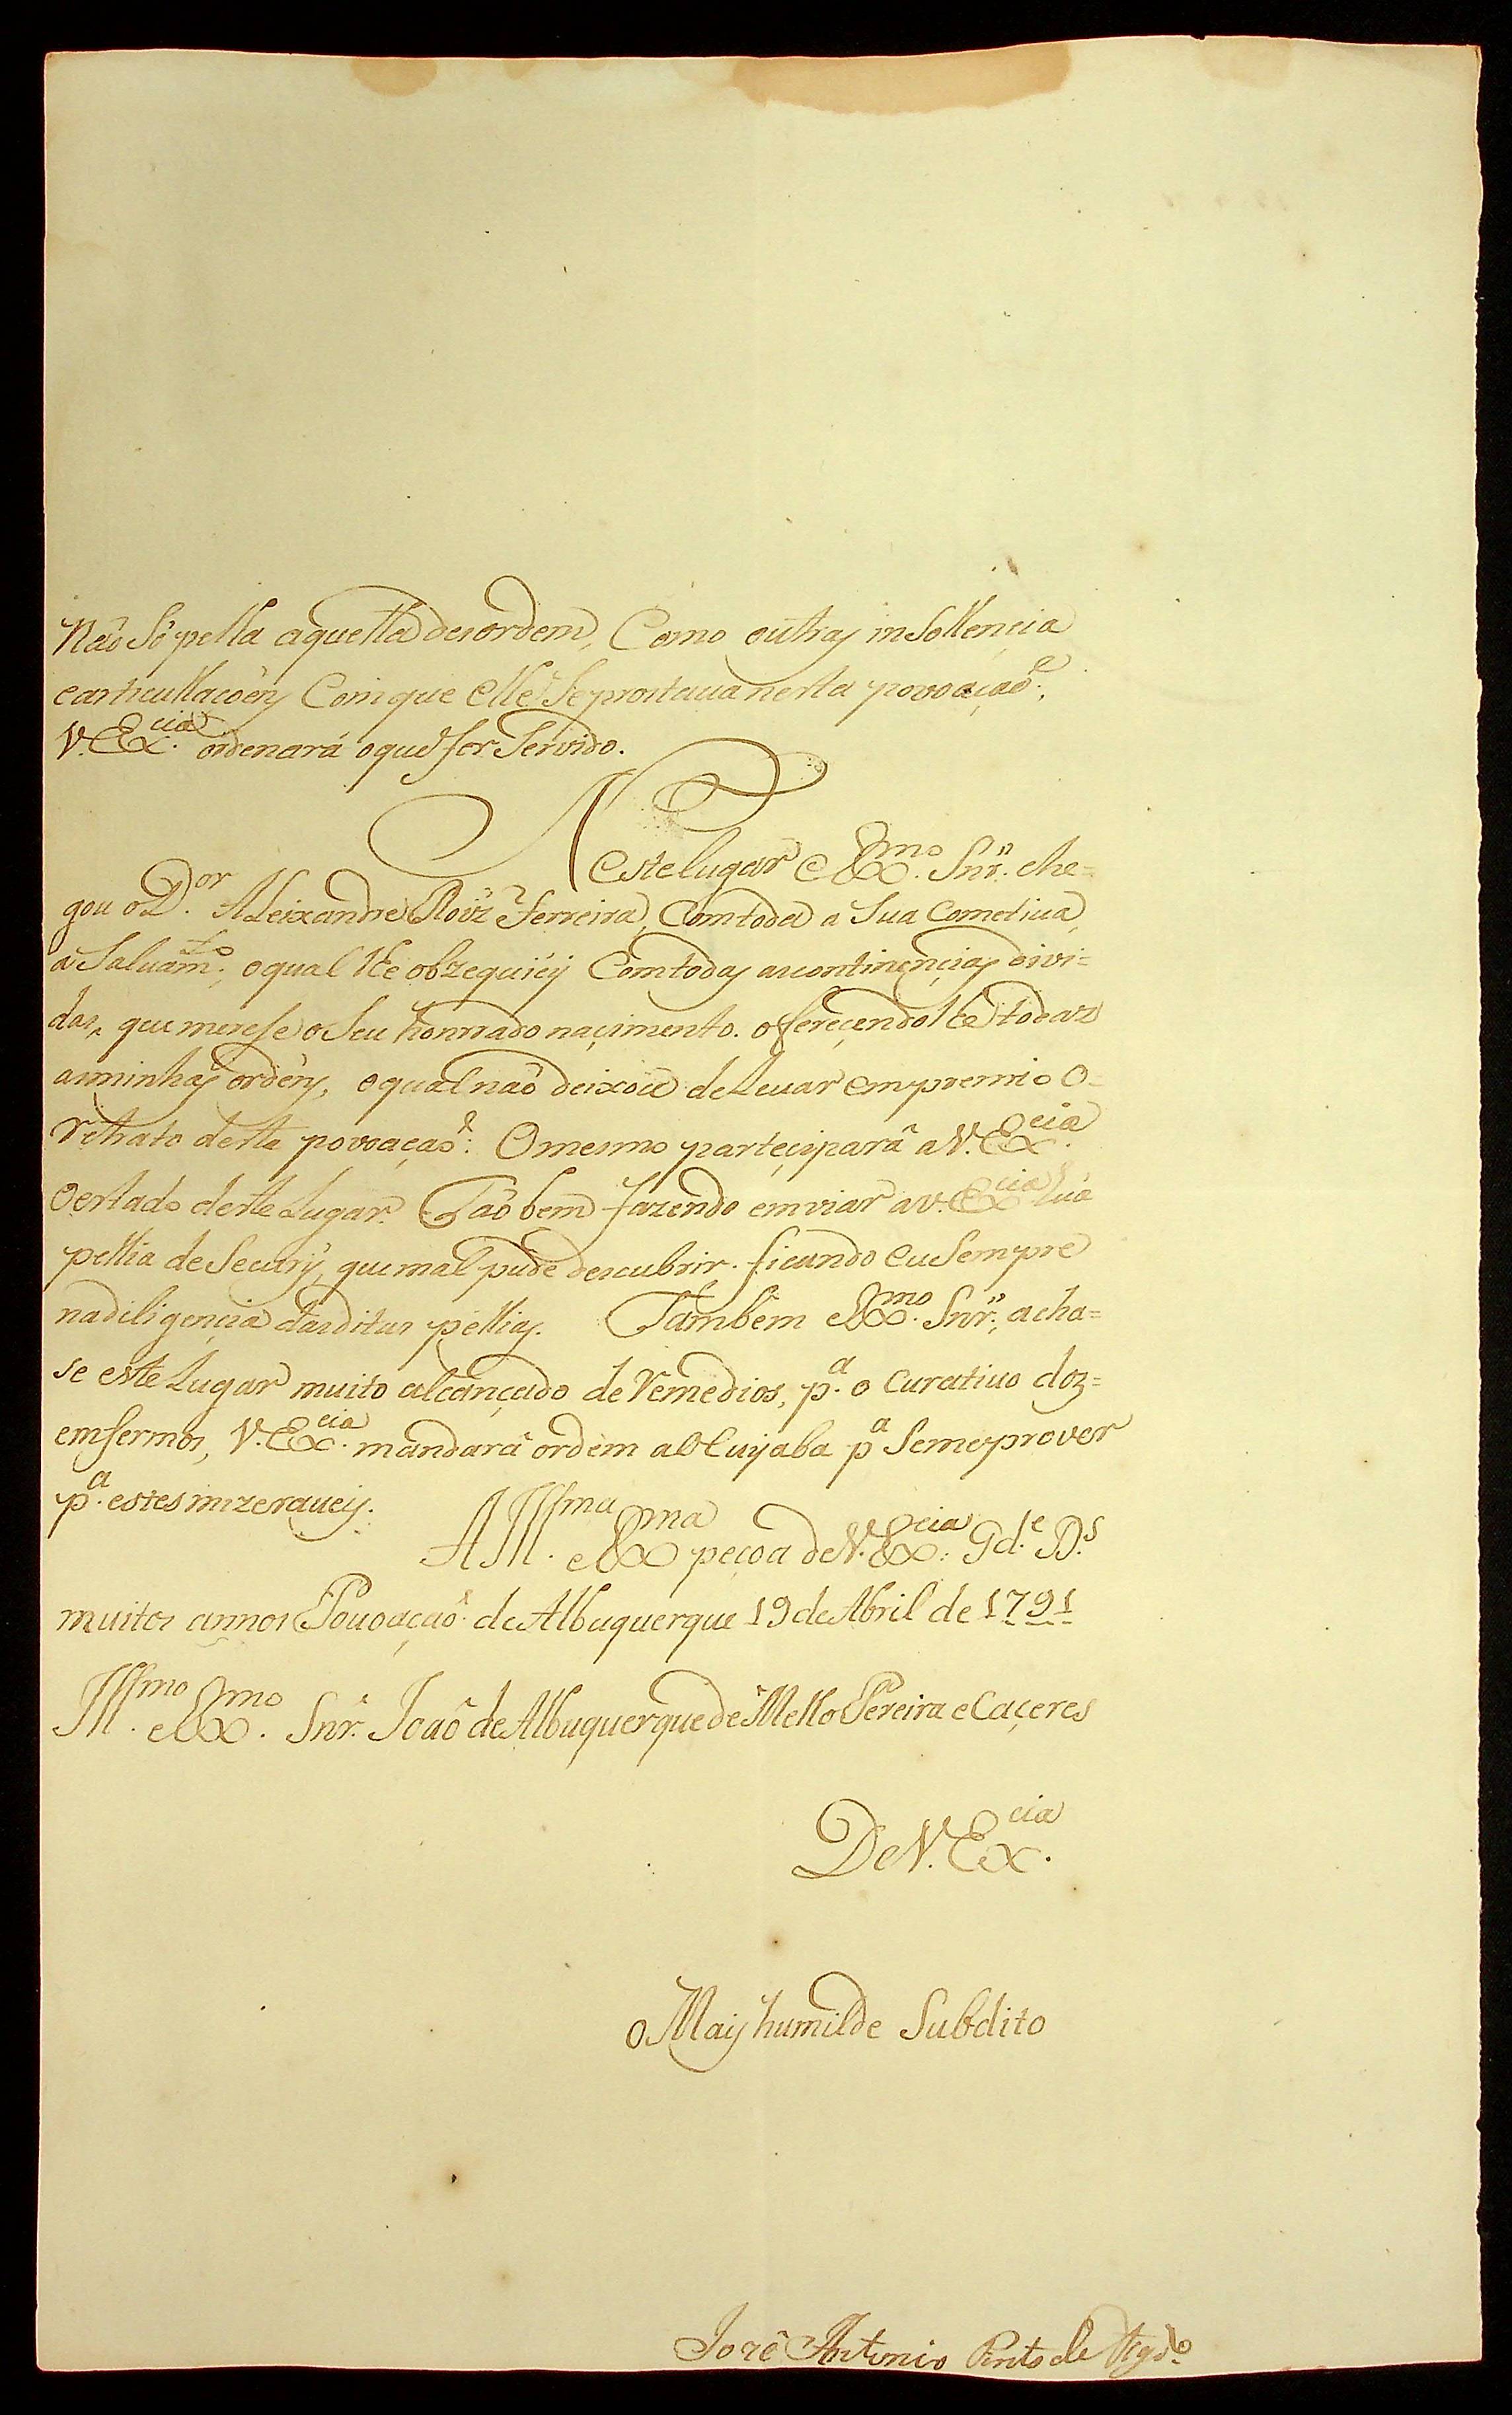 Não Só pella aquella desordem, Como outras insollençia
earticullaçoẽns Comque elle Seprontava nesta povoaçaõ.
V. Ex.cia ordenará oque for Servido.
Neste lugar e Ex.mo Snr. che=
gou o D.or Aleixandre Roiz Ferreira, Comtoda a Sua Cometiva
a Salvam.to, o qual lhe obzequiéy Comtodas ascontinençias divi=
das, que merese o Seu honrrado naçimento. ofereçendo lhe todaz
asminhas ordẽns, o qual naõ deixou de Levar em premio O=
retrato desta povoaçaõ: O mesmo parteçipará a V. Ex.cia
O estado deste Lugar. Taõ bem fazendo enviar a V. Ex.cia huã
pellia de Secury, que mal pude descubrir. ficando eu Sempre
na diligençia dasditas pellias. Tambem e Ex.mo Snr. acha=
se este Lugar muito alcançado de Remedios, p.a o Curativo doz=
emfermos, V. Ex.cia mandará ordem ao Cuyaba p.a Semeprover
p.a estes mizeraveis.
A Ill.ma e Ex.ma peçoa de V. Ex.cia G.de D.s
muitos annos Povoaçaõ de Albuquerque 19 de Abril de 1791
Ill.mo e Ex.mo Snr. Joaõ de Albuquerque de Mello Pereira e Caçeres
De V. Ex.cia
O Mais humilde Subdito
Jozé Antonio Pinto de Figd.o